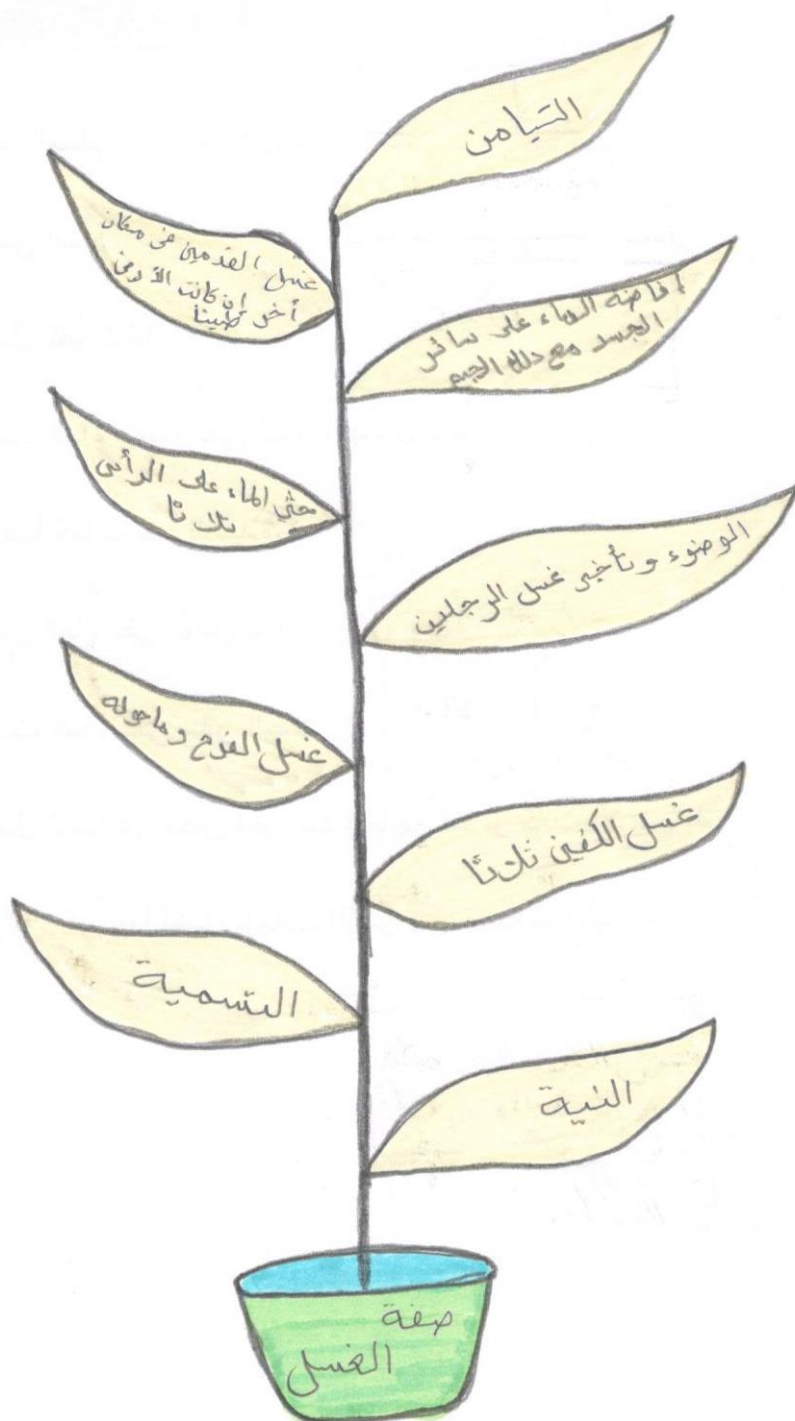 التيامن
غسل القدمين في مكان
أخر إن كانت الأرض
طينا
افاضة الماء على سائر
الجسد مع دلك الجسم
حثي الماء على الرأس
ثلاثا
الوضوء وتأخير غسل الرجلين
غسل الفرج وماحوله
غسل الكفين ثلاثا
التسمية
النية
صفة
الغسل